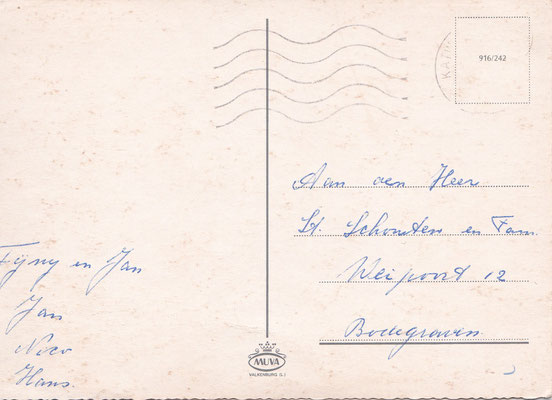 916/242
KA
Aan den Heer
St. Schouten en Fam.
Weipoort 12
Bodegraven
Fijny en Jan
Jan
Nico
Hans.
MUVA
VALKENBURG (L.)